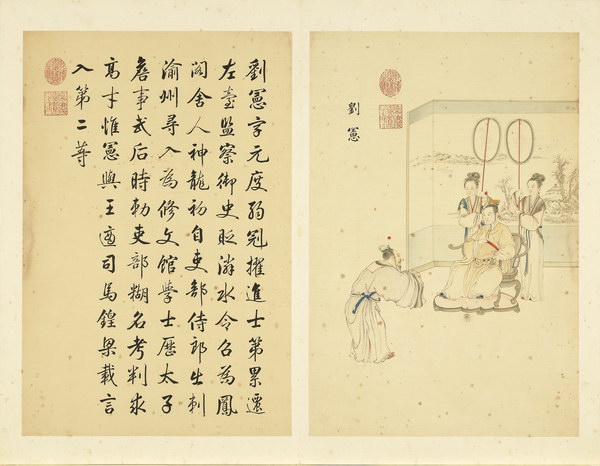 劉憲
劉憲字元度弱冠擢進士第累遷
左臺監察御史貶潾水令召為鳳
閣舍人神龍初自吏部侍郎出刺
渝州尋入為修文館學士歷太子
詹事武后時勅吏部糊名考判求
高才惟憲與王適司馬鍠梁載言
入第二等